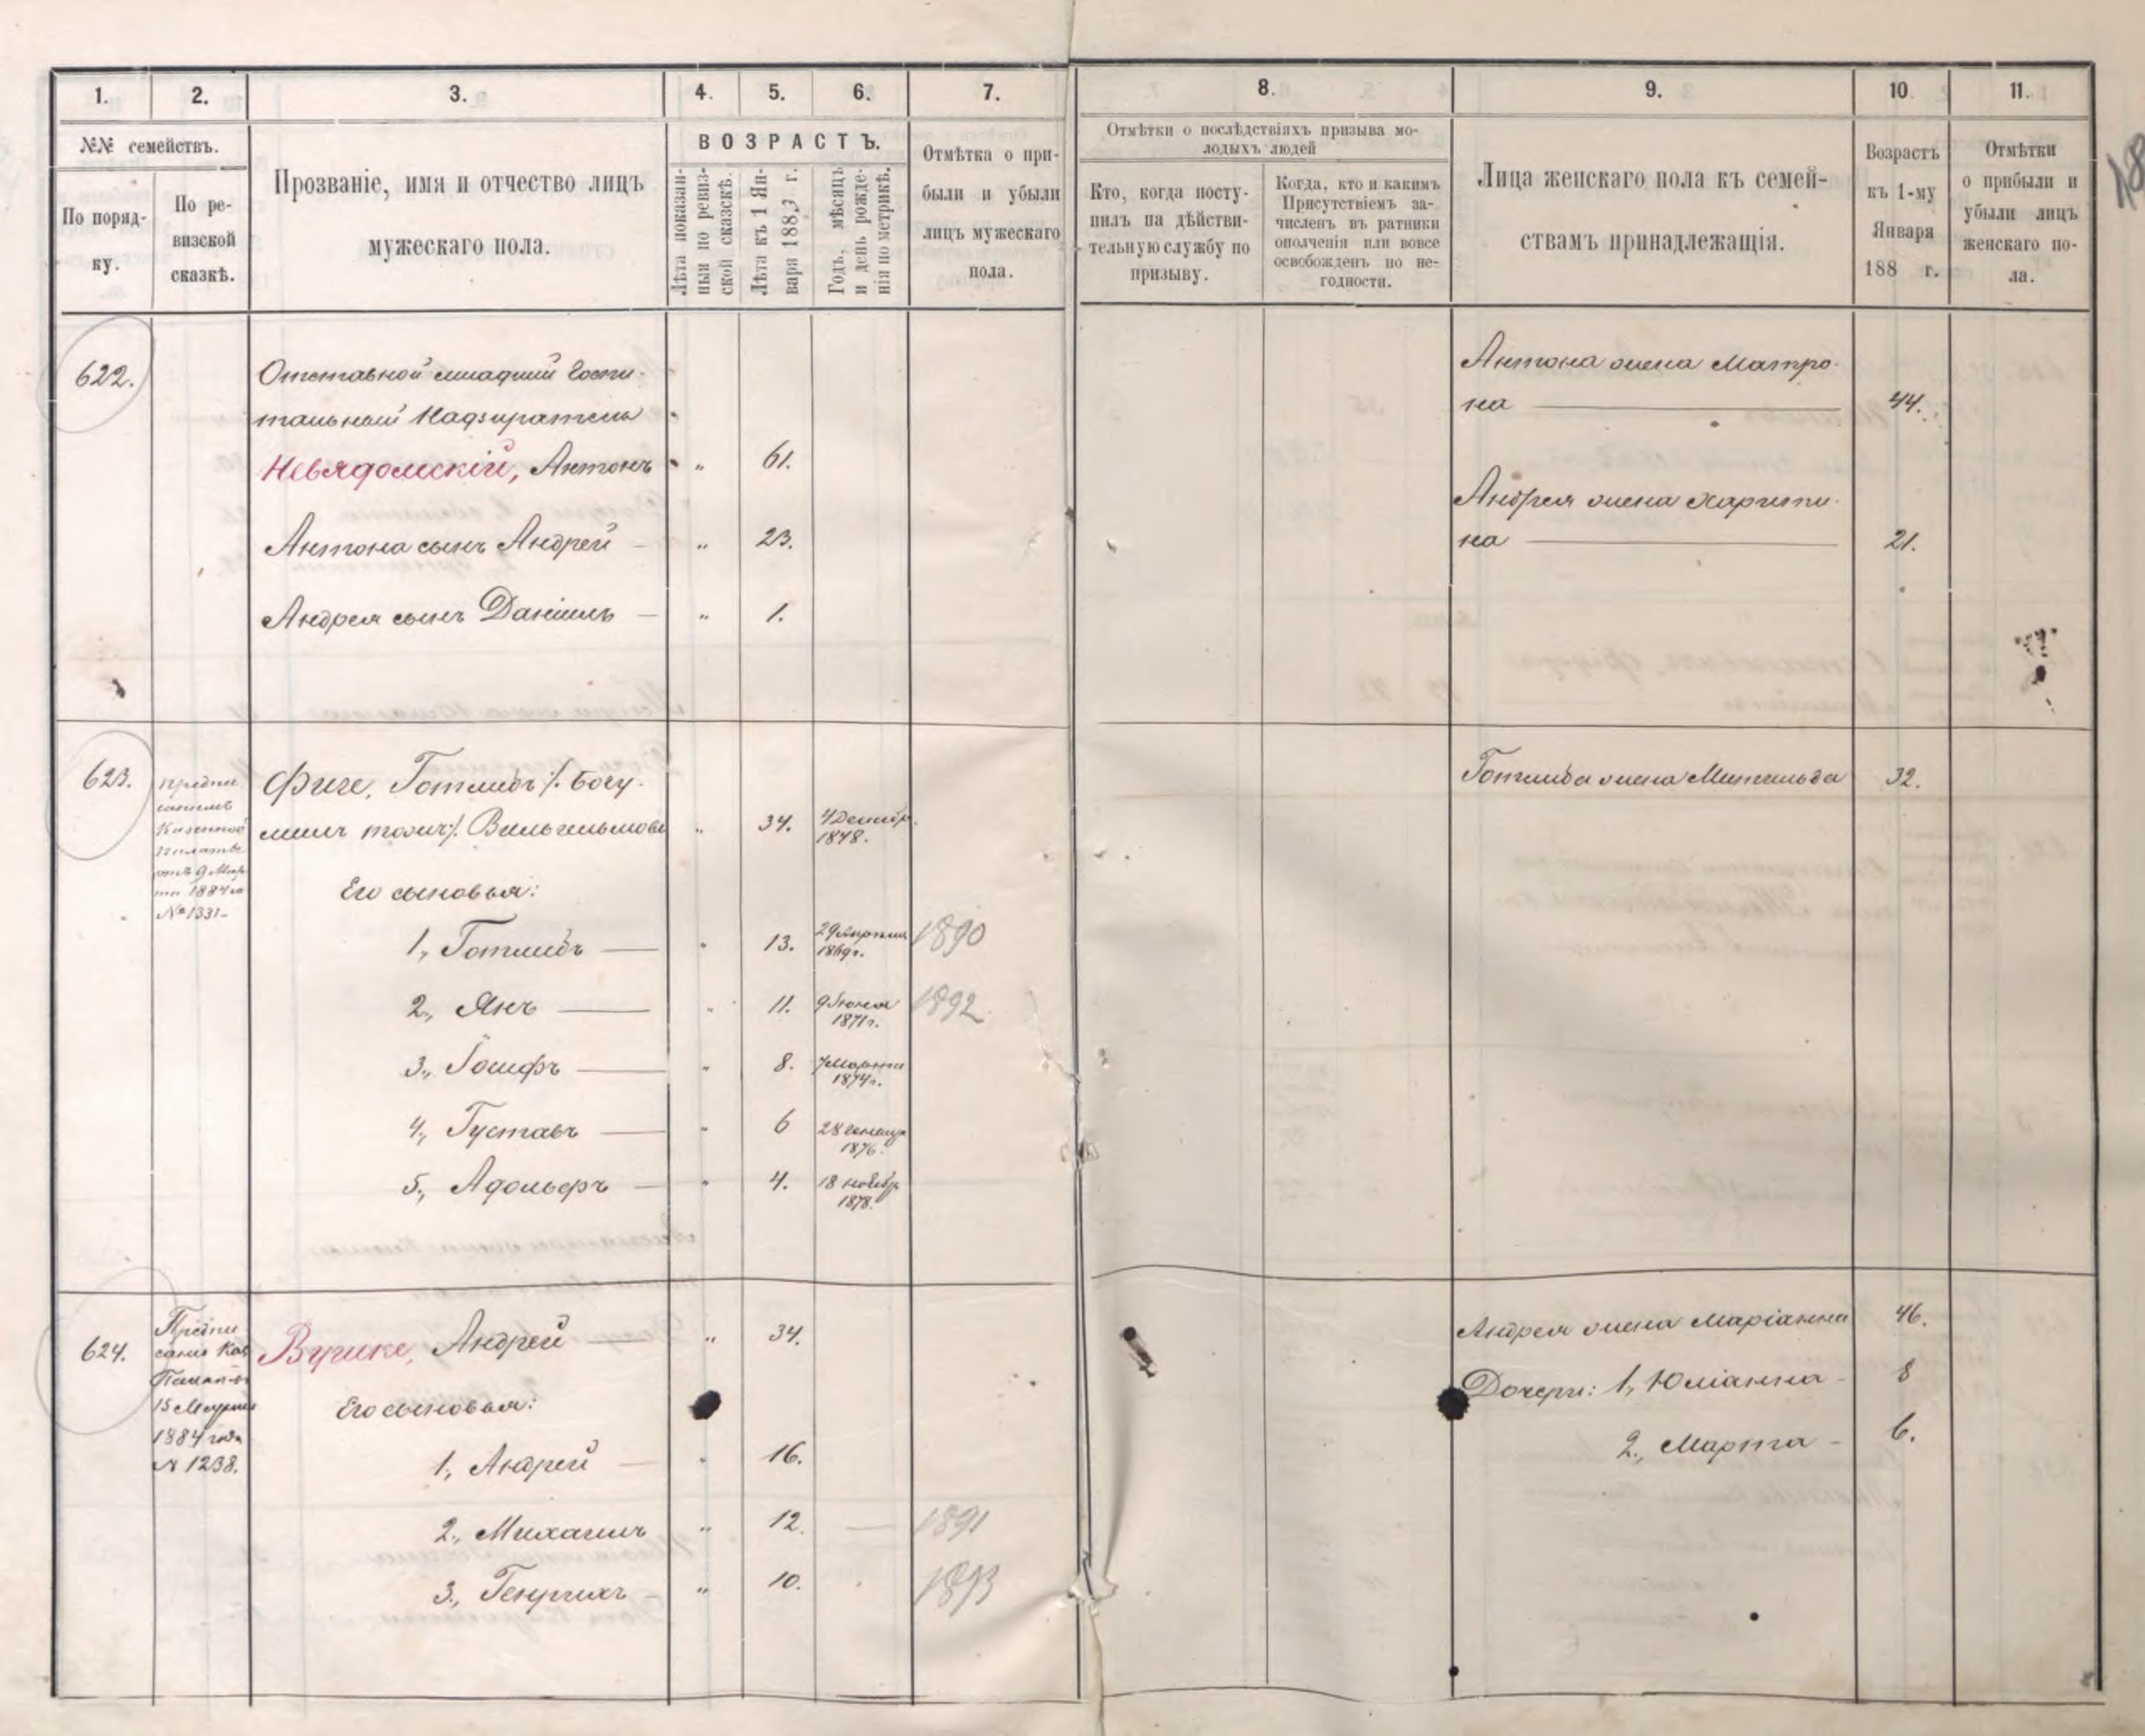 1. 2. 3. 4. 5. 6. 7. 8. 9. 10. 11.
№№ семействъ.
По поряд-
ку.
По ре-
визской
сказкѣ.
Прозваніе, имя и отчество лицъ
мужескаго пола.
ВОЗРАСТЪ.
Лѣта показан-
ныя по ревиз-
ской сказкѣ.
Лѣта къ 1 Ян-
варя 1883 г.
Годъ, мѣсяцъ
и день рожде-
нія по метрикѣ.
Отмѣтка о при-
были и убыли
лицъ мужескаго
пола.
Отмѣтки о послѣдствіяхъ призыва мо-
лодыхъ людей
Кто, когда посту-
пилъ на дѣйстви-
тельную службу по
призыву.
Когда, кто и какимъ
Присутствіемъ за-
численъ въ ратники
ополченія или вовсе
освобожденъ по не-
годности.
Лица женскаго пола къ семей-
ствамъ принадлежащія.
Возрастъ
къ 1-му
Января
188 г.
Отмѣтки
о прибыли и
убыли лицъ
женскаго по-
ла.
622.
Отставной младшій Госпи-
тальный Надзиратель
Невядомскій, Антонъ " 61.
Антона сынъ Андрей — " 23.
Андрея сынъ Даніилъ — " 1.
Антона жена Матро-
на — 44.
Андрея жена Харити-
на — 21.
623.
Предпи
саніемъ
Казенной
Палаты
отъ 9 Мар
та 1884 г
№ 1331
Фиге, Готлибъ /: Богу-
милъ тожъ :/ Вильгельмовъ " 34. 4 Декабр. 1848.
Его сыновья:
1, Готлибъ — " 13. 29 Апрѣля 1869 г. 1890
2, Янъ — " 11. 9 Іюня 1871 г. 1892
3, Іосифъ — " 8. 7 Марта 1874 г.
4, Густавъ — " 6 28 1876.
5, Адольфъ — " 4. 18 Ноябр 1878.
Готлиба жена Матильда 32.
624.
Предпи
саніе Каз
Палаты
15 Марта
1884 года
№ 1238.
Андрей — " 34.
Его сыновья:
1, Андрей — " 16.
2, Михаилъ " 12. — 1891
3, Генрихъ — " 10. 1893
Андрея жена Маріанна 46.
Дочери: 1, Юліанна - 8
2, Марта - 6.